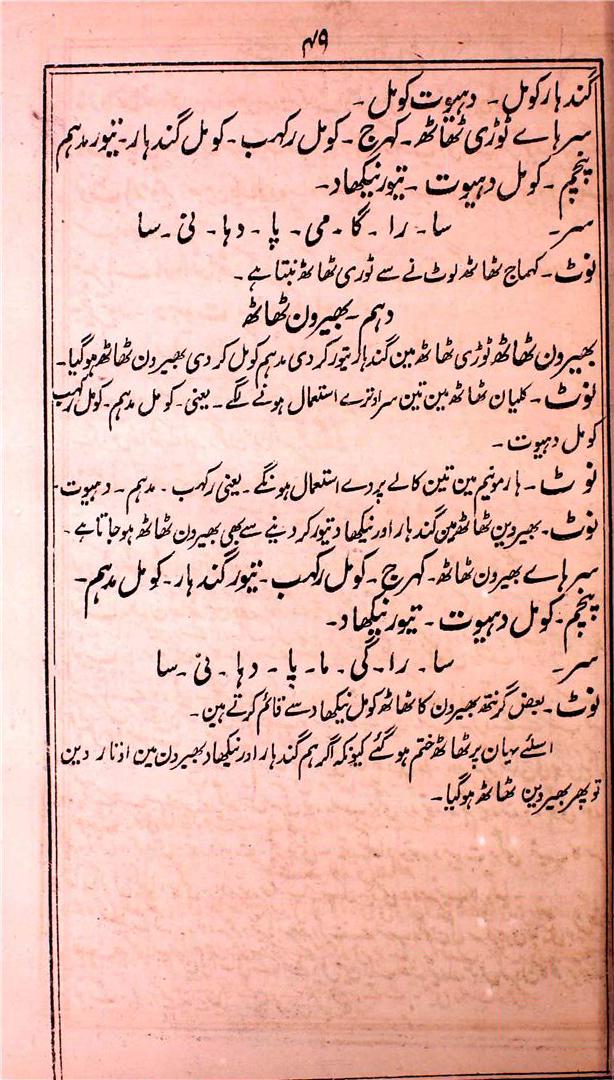 ۴۹
گندہارکومل - دہیوت کومل -
سرہاے ٹوڑی ٹھاٹھ - کہرج - کومل رکہب - کومل گندہار - تیور مدہم
پنچم - کومل دہیوت - تیورنیکھاد -
سر - سا - را - گا - می - پا - دہا - نی - سا
نوٹ - کہماج ٹھاٹھ لوٹ نے سے ٹوری ٹھاٹھ بنتا ہے -
دہم - بھیرون ٹھاٹھ
بھیرون ٹھاٹھ ٹوڑی ٹھاٹھ مین گندہار تیور کر دی مدہم کومل کر دی بھیرون ٹھاٹھ ہوگیا -
نوٹ - کلیان ٹھاٹھ مین تین سر اوترے استعمال ہونے لگے - یعنی - کومل مدہم - کومل رکہب
کومل دہیوت -
نوٹ - ہارمونیم مین تین کالے پردے استعمال ہونگے - یعنی رکہب - مدہم - دہیوت -
نوٹ - بھیروین ٹھاٹھ مین گندہار اور نیکھاد تیور کر دینے سے بھی بھیرون ٹھاٹھ ہو جاتا ہے -
سرہاے بھیرون ٹھاٹھ - کہرج - کومل رکہب - تیور گندہار - کومل مدہم -
پنچم - کومل دہیوت - تیورنیکھاد -
سر - سا - را - گی - ما - پا - دہا - نی - سا
نوٹ - بعض گرنتھ بھیرون کا ٹھاٹھ کومل نیکھاد سے قائم کرتے ہین -
اسلئے یہان پر ٹھاٹھ ختم ہوگئے کیونکہ اگر ہم گندہار اور نیکھاد بھیرون مین اوتار دین
تو پھر بھیروین ٹھاٹھ ہوگیا -